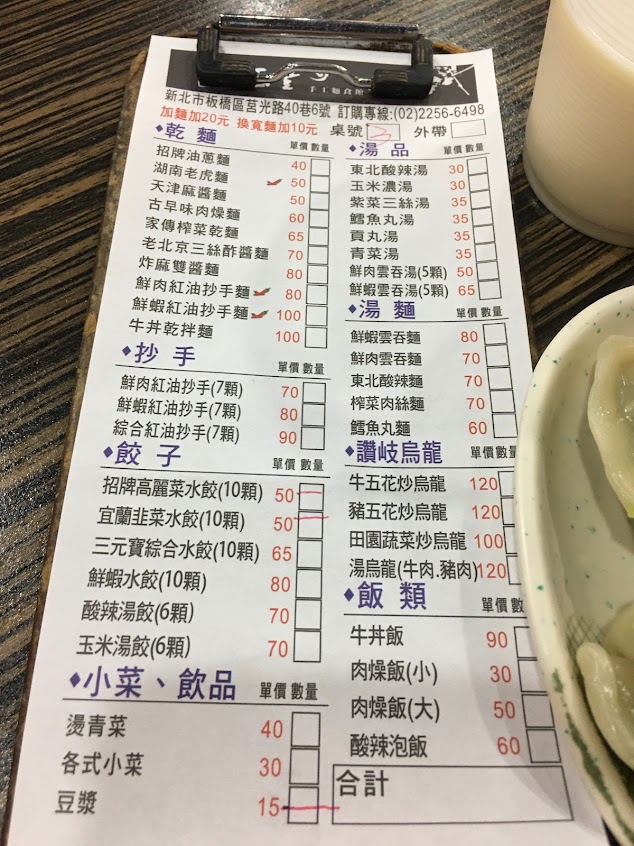 手工麵食館
新北市板橋區莒光路40巷6號 訂購專線:(02)2256-6498
加麵加20元 換寬麵加10元 桌號 3 外帶
◆乾麵 單價 數量
招牌油蔥麵 40
湖南老虎麵 50
天津麻醬麵 50
古早味肉燥麵 60
家傳榨菜乾麵 65
老北京三絲酢醬麵 70
炸麻雙醬麵 80
鮮肉紅油抄手麵 80
鮮蝦紅油抄手麵 100
牛丼乾拌麵 100
◆抄手 單價 數量
鮮肉紅油抄手(7顆) 70
鮮蝦紅油抄手(7顆) 80
綜合紅油抄手(7顆) 90
◆餃子 單價 數量
招牌高麗菜水餃(10顆) 50
宜蘭韭菜水餃(10顆) 50
三元寶綜合水餃(10顆) 65
鮮蝦水餃(10顆) 80
酸辣湯餃(6顆) 70
玉米湯餃(6顆) 70
◆小菜、飲品 單價 數量
燙青菜 40
各式小菜 30
豆漿 15
◆湯品 單價 數量
東北酸辣湯 30
玉米濃湯 30
紫菜三絲湯 35
鱈魚丸湯 35
貢丸湯 35
青菜湯 35
鮮肉雲吞湯(5顆) 50
鮮蝦雲吞湯(5顆) 65
◆湯麵 單價 數量
鮮蝦雲吞麵 80
鮮肉雲吞麵 70
東北酸辣麵 70
榨菜肉絲麵 70
鱈魚丸麵 60
◆讚岐烏龍 單價 數量
牛五花炒烏龍 120
豬五花炒烏龍 120
田園蔬菜炒烏龍 100
湯烏龍(牛肉.豬肉) 120
◆飯類 單價 數
牛丼飯 90
肉燥飯(小) 30
肉燥飯(大) 50
酸辣泡飯 60
合計